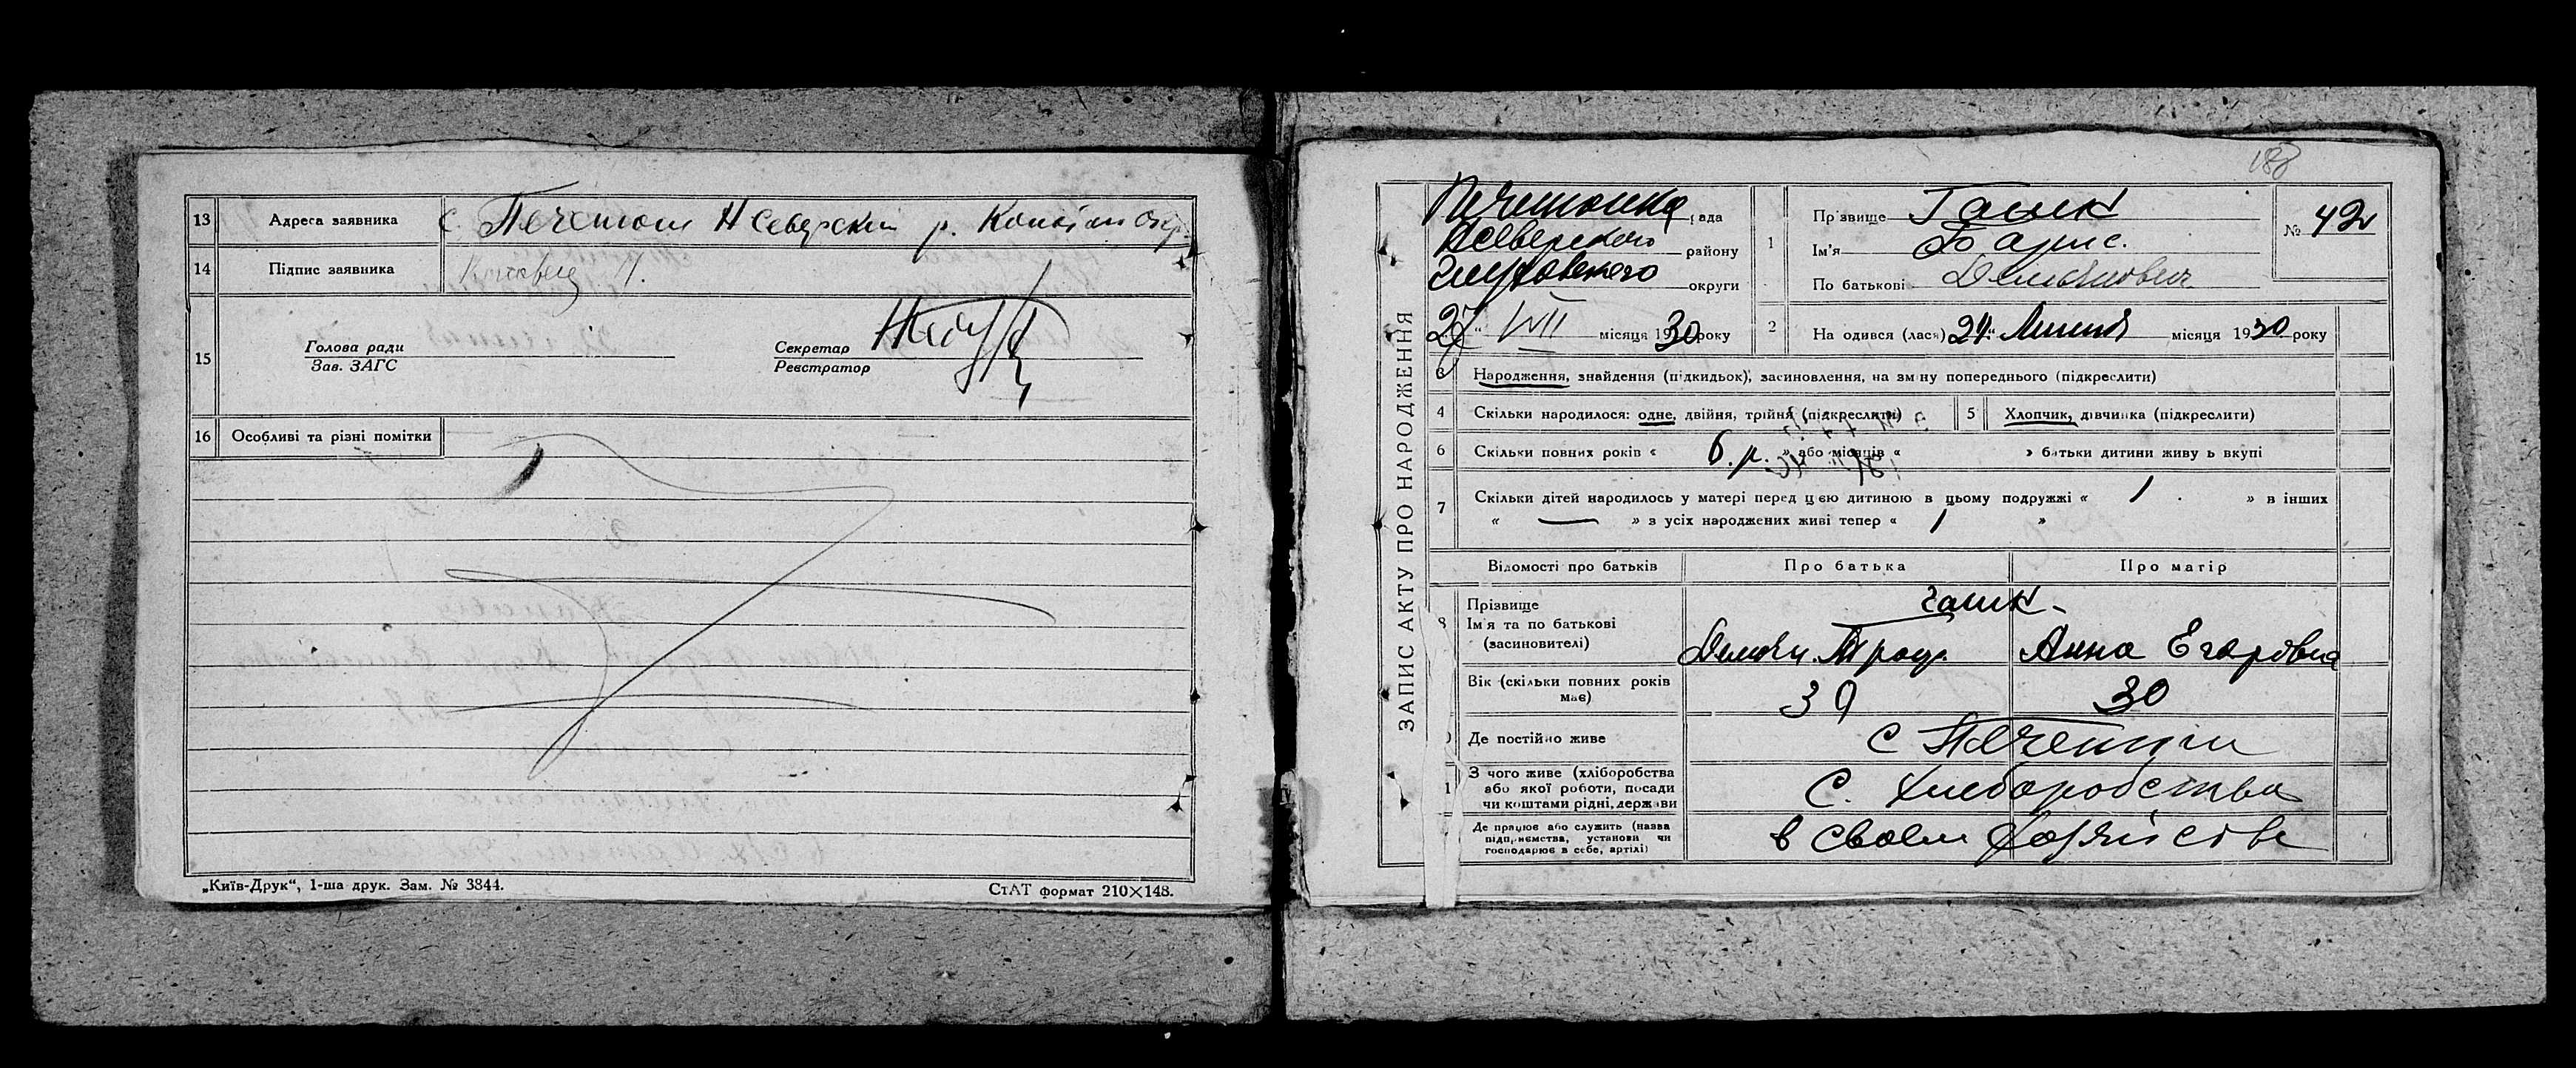 13 Адреса заявника с. Н Северский р.
14 Підпис заявника
15 Голова ради
Зав. ЗАГС
Секретар
Реєстратор
16 Особливі та різні помітки
„Київ-Друк“, 1-ша друк. Зам. № 3844.
СтАТ формат 210×148.
188
ЗАПИС АКТУ ПРО НАРОДЖЕННЯ
рада
району
округи
27 " VII місяця 1930 року
1 Прізвище Гашк
Ім'я Борис.
По батькові Демьянович
№ 42
2 На одився (лася) 24 " Липня місяця 1930 року
3 Народження, знайдення (підкидьок), засиновлення, на зміну попереднього (підкреслити)
4 Скільки народилося: одне, двійня, трійня (підкреслити)
5 Хлопчик, дівчинка (підкреслити)
6 Скільки повних років « 6. р. » або місяців « » батьки дитини живуть вкупі
7 Скільки дітей народилось у матері перед цією дитиною в цьому подружжі « 1 » в інших
« — » з усіх народжених живі тепер « 1 »
Відомості про батьків Про батька Про матір
8 Прізвище гашк
Ім'я та по батькові
(засиновителі) Демьян Анна Егоровна
Вік (скільки повних років
має) 39 30
Де постійно живе с
З чого живе (хліборобства
або якої роботи, посади
чи коштами рідні, держави С. Хлеборобства
Де працює або служить (назва
підприємства, установи чи
господарює в себе, артілі) в своем